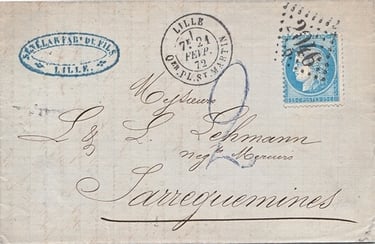 SÉNÉLAR FABt DE FILS
LILLE
LILLE
1
7E 21
FÉVR.
72
QER. PL. ST. MARTIN
2046
2
Messieurs
L & L. Lehmann
negts Merciers
Sarreguemines